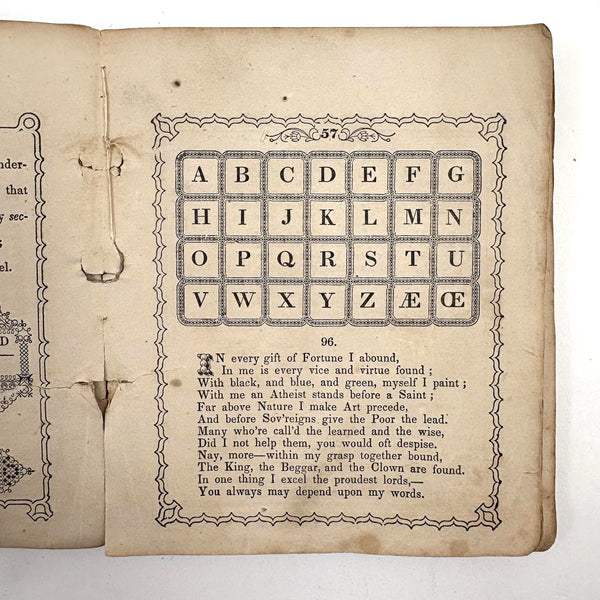 nder-
that
y sec-
el.
D
57
A B C D E F G
H I J K L M N
O P Q R S T U
V W X Y Z Æ Œ
96.
IN every gift of Fortune I abound,
In me is every vice and virtue found ;
With black, and blue, and green, myself I paint ;
With me an Atheist stands before a Saint ;
Far above Nature I make Art precede,
And before Sov'reigns give the Poor the lead.
Many who're call'd the learned and the wise,
Did I not help them, you would oft despise.
Nay, more—within my grasp together bound,
The King, the Beggar, and the Clown are found.
In one thing I excel the proudest lords,—
You always may depend upon my words.